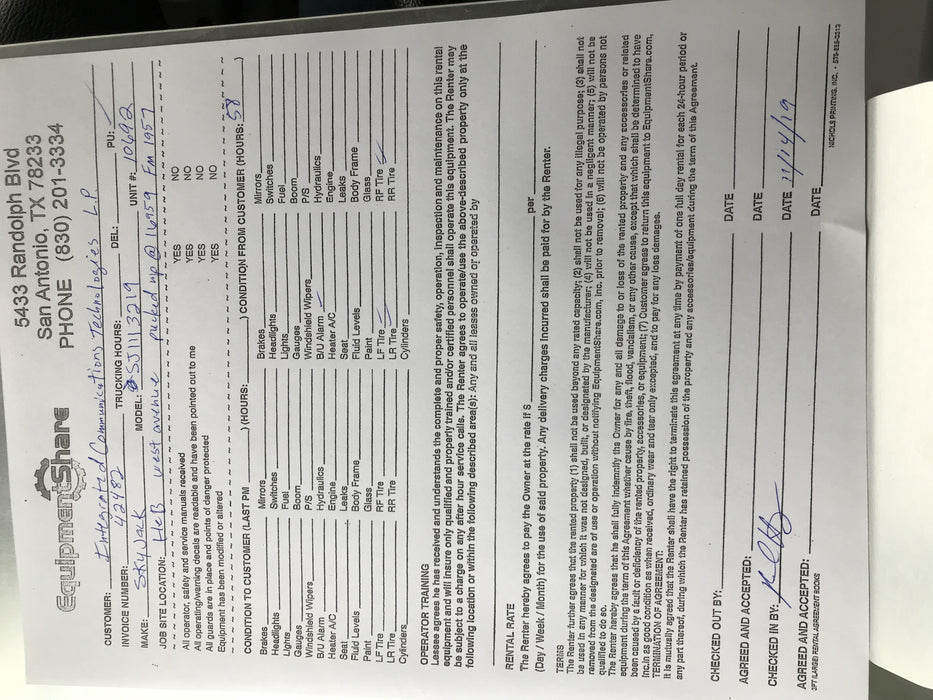 EquipmentShare
5433 Randolph Blvd
San Antonio, TX 78233
PHONE (830) 201-3334
CUSTOMER: Integrated Communications Technologies L.P
INVOICE NUMBER: 42482 TRUCKING HOURS: DEL: PU:
MAKE: Skyjack MODEL: SJ1113219 UNIT #: 10692
JOB SITE LOCATION: HEB West avenue picked up @ 16959 Fm 1957
All operator, safety and service manuals received YES NO
All operating/warning decals are readable and have been pointed out to me YES NO
All guards are in place and points of danger protected YES NO
Equipment has been modified or altered YES NO
CONDITION TO CUSTOMER (LAST PM ) (HOURS: ) CONDITION FROM CUSTOMER (HOURS: 58 )
Brakes Mirrors Brakes Mirrors
Headlights Switches Headlights Switches
Lights Fuel Lights Fuel
Gauges Boom Gauges Boom
Windshield Wipers P/S Windshield Wipers P/S
B/U Alarm Hydraulics B/U Alarm Hydraulics
Heater A/C Engine Heater A/C Engine
Seat Leaks Seat Leaks
Fluid Levels Body Frame Fluid Levels Body Frame
Paint Glass Paint Glass
LF Tire RF Tire LF Tire RF Tire
LR Tire RR Tire LR Tire RR Tire
Cylinders Cylinders
OPERATOR TRAINING
Lessee agrees he has received and understands the complete and proper safety, operation, inspection and maintenance on this rental
equipment and will insure only qualified and properly trained and/or certified personnel shall operate this equipment. The Renter may
be subject to a charge on any after hour service calls. The Renter agrees to operate/use the above-described property only at the
following location or within the following described area(s): Any and all leases owned or operated by
RENTAL RATE
The Renter hereby agrees to pay the Owner at the rate if $ per
(Day / Week / Month) for the use of said property. Any delivery charges incurred shall be paid for by the Renter.
TERMS
The Renter further agrees that the rented property (1) shall not be used beyond any rated capacity; (2) shall not be used for any illegal purpose; (3) shall not
be used in any manner for which it was not designed, built, or designated by the manufacturer; (4) will not be used in a negligent manner; (5) will not be
removed from the designated are of use or operation without notifying EquipmentShare.com, Inc. prior to removal; (6) will not be operated by persons not
qualified to do so.
The Renter hereby agrees that he shall fully indemnify the Owner for any and all damage to or loss of the rented property and any accessories or related
equipment during the term of this Agreement whether cause by fire, theft, flood, vandalism, or any other cause, except that which shall be determined to have
been caused by a fault or deficiency of the rented property, accessories, or equipment; (7) Customer agrees to return this equipment to EquipmentShare.com,
Inc.in as good condition as when received, ordinary wear and tear only excepted, and to pay for any loss damages.
TERMINATION OF AGREEMENT:
It is mutually agreed that the Renter shall have the right to terminate this agreement at any time by payment of one full day rental for each 24-hour period or
any part thereof, during which the Renter has retained possession of the property and any accessories/equipment during the term of this Agreement.
CHECKED OUT BY: DATE
AGREED AND ACCEPTED: DATE
CHECKED IN BY: DATE 11/14/19
AGREED AND ACCEPTED: DATE
NICHOLS PRINTING, INC.